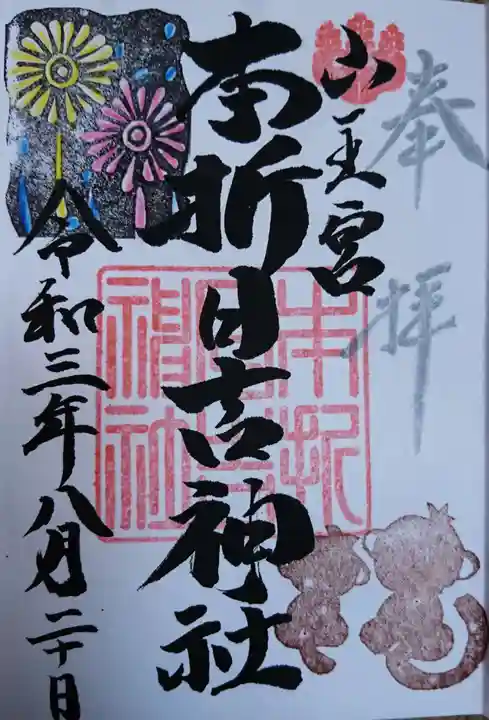 奉拝
山王宮
本折日吉神社
本折
日吉
神社
令和三年八月二十日